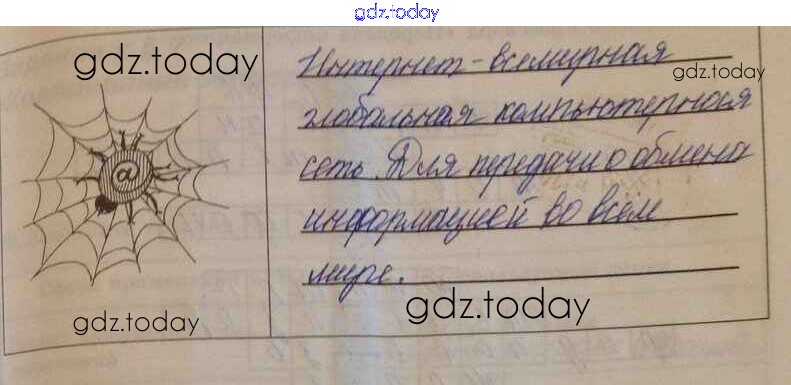 gdz.today
gdz.today
Интернет - всемирная
gdz.today
глобальная компьютерная
@
сеть. Для передачи о обмена
информацией во всём
мире.
gdz.today
gdz.today